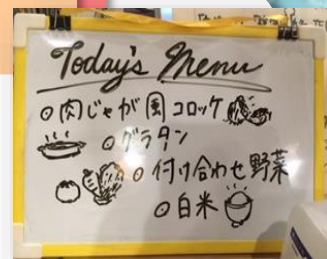 Today's Menu
◎肉じゃが風コロッケ
◎グラタン
◎付け合わせ野菜
◎白米